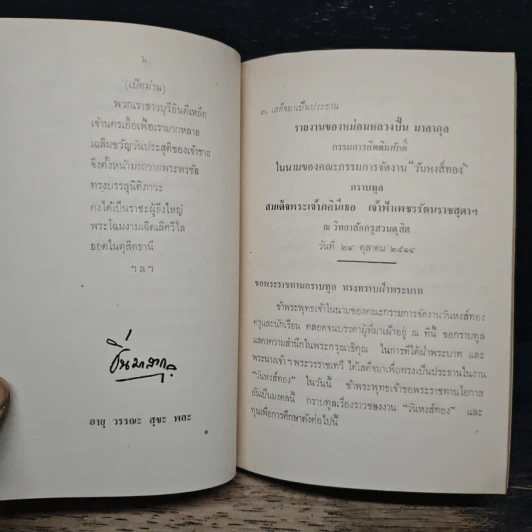 ๖
(เปิดม่าน)
พวกเราชาวบุรีอินดีเหลือ
เจ้านครเอื้อเฟื้อเรามากหลาย
เฉลิมขวัญวันประสูติของเจ้าชาย
จึงตั้งหน้ามาถวายพระพรชัย
ทรงบรรลุนิติภาวะ
คงได้เป็นราชะผู้ยิ่งใหญ่
พระโฉมงามเฉิดเลิศวิไล
ยอดในดุสิตธานี
ฯลฯ
อายุ วรรณะ สุขะ พละ
๑. เสด็จมาเป็นประธาน
รายงานของหม่อมหลวงปิ่น มาลากุล
กรรมการกิตติมศักดิ์
ในนามของคณะกรรมการจัดงาน "วันหงส์ทอง"
กราบทูล
สมเด็จพระเจ้าภคินีเธอ เจ้าฟ้าเพชรรัตนราชสุดาฯ
ณ วิทยาลัยครูสวนดุสิต
วันที่ ๒๔ ตุลาคม ๒๕๑๔
ขอพระราชทานกราบทูล ทรงทราบฝ่าพระบาท
ข้าพระพุทธเจ้าในนามของคณะกรรมการจัดงานวันหงส์ทอง
ครูและนักเรียน ตลอดจนบรรดาผู้ที่มาเฝ้าอยู่ ณ ที่นี้ ขอกราบทูล
แสดงความสำนึกในพระกรุณาธิคุณ ในการที่ใต้ฝ่าพระบาท และ
พระนางเจ้าฯ พระวรราชเทวี ได้เสด็จมาเพื่อทรงเป็นประธานในงาน
"วันหงส์ทอง" ในวันนี้ ข้าพระพุทธเจ้าขอพระราชทานโอกาส
อันเป็นมงคลนี้ กราบทูลเรื่องราวของงาน "วันหงส์ทอง" และ
ทุนเพื่อการศึกษาดังต่อไปนี้